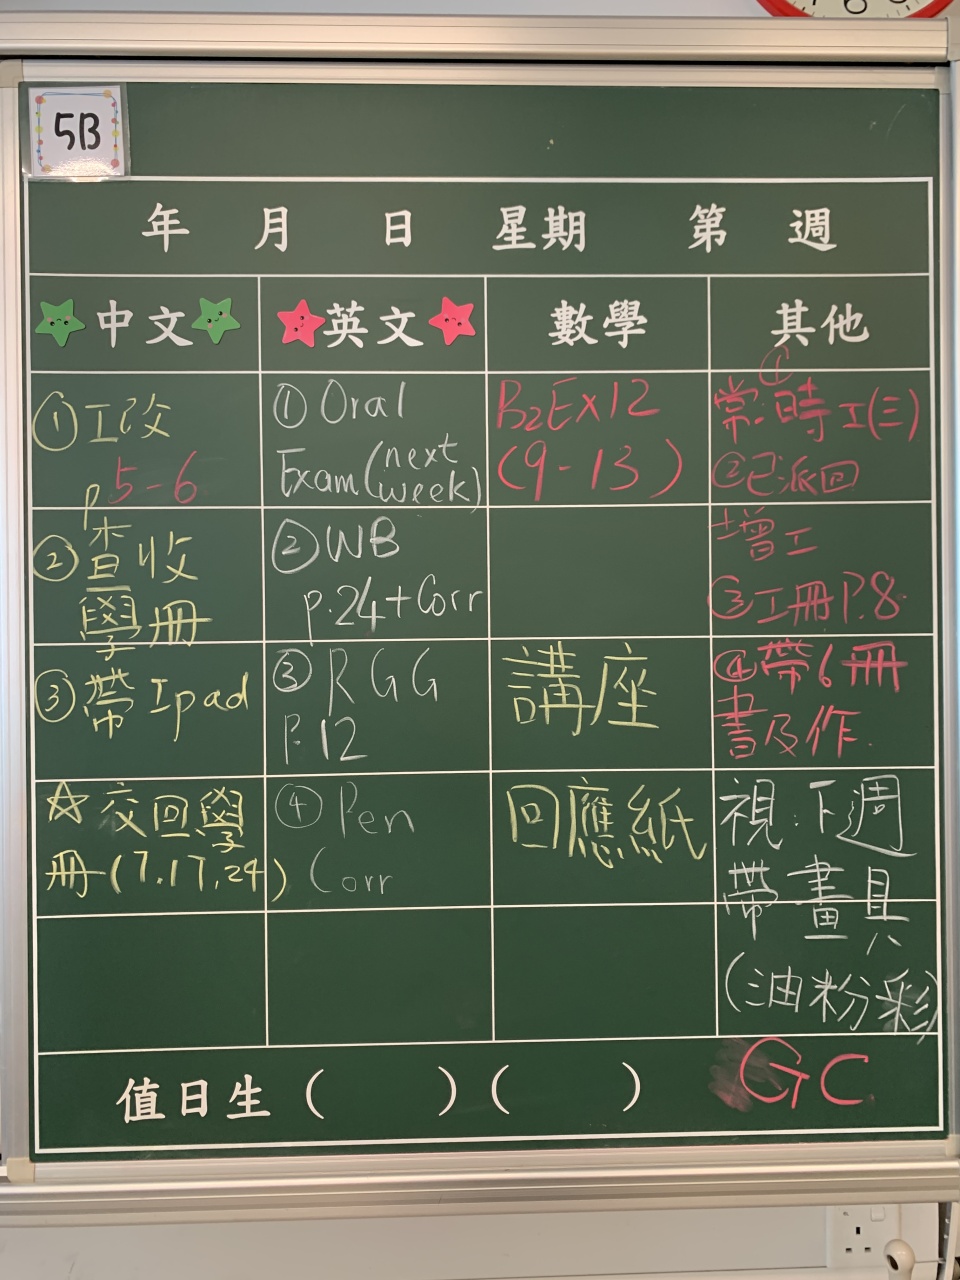 5B
年 月 日 星期 第 週
中文
英文
數學
其他
①工改
p5-6
②查收
學冊
③帶Ipad
☆交回學
冊(7.17.24)
①Oral
Exam(next
week)
②WB
p.24+Corr
③RGG
P.12
④Pen
Corr
B2Ex12
(9-13)
講座
回應紙
①
常.時工(三)
②已派回
增工
③工冊P.8
④帶6冊
書及作.
視:下週
帶畫具
(油粉彩)
值日生( )( )
GC